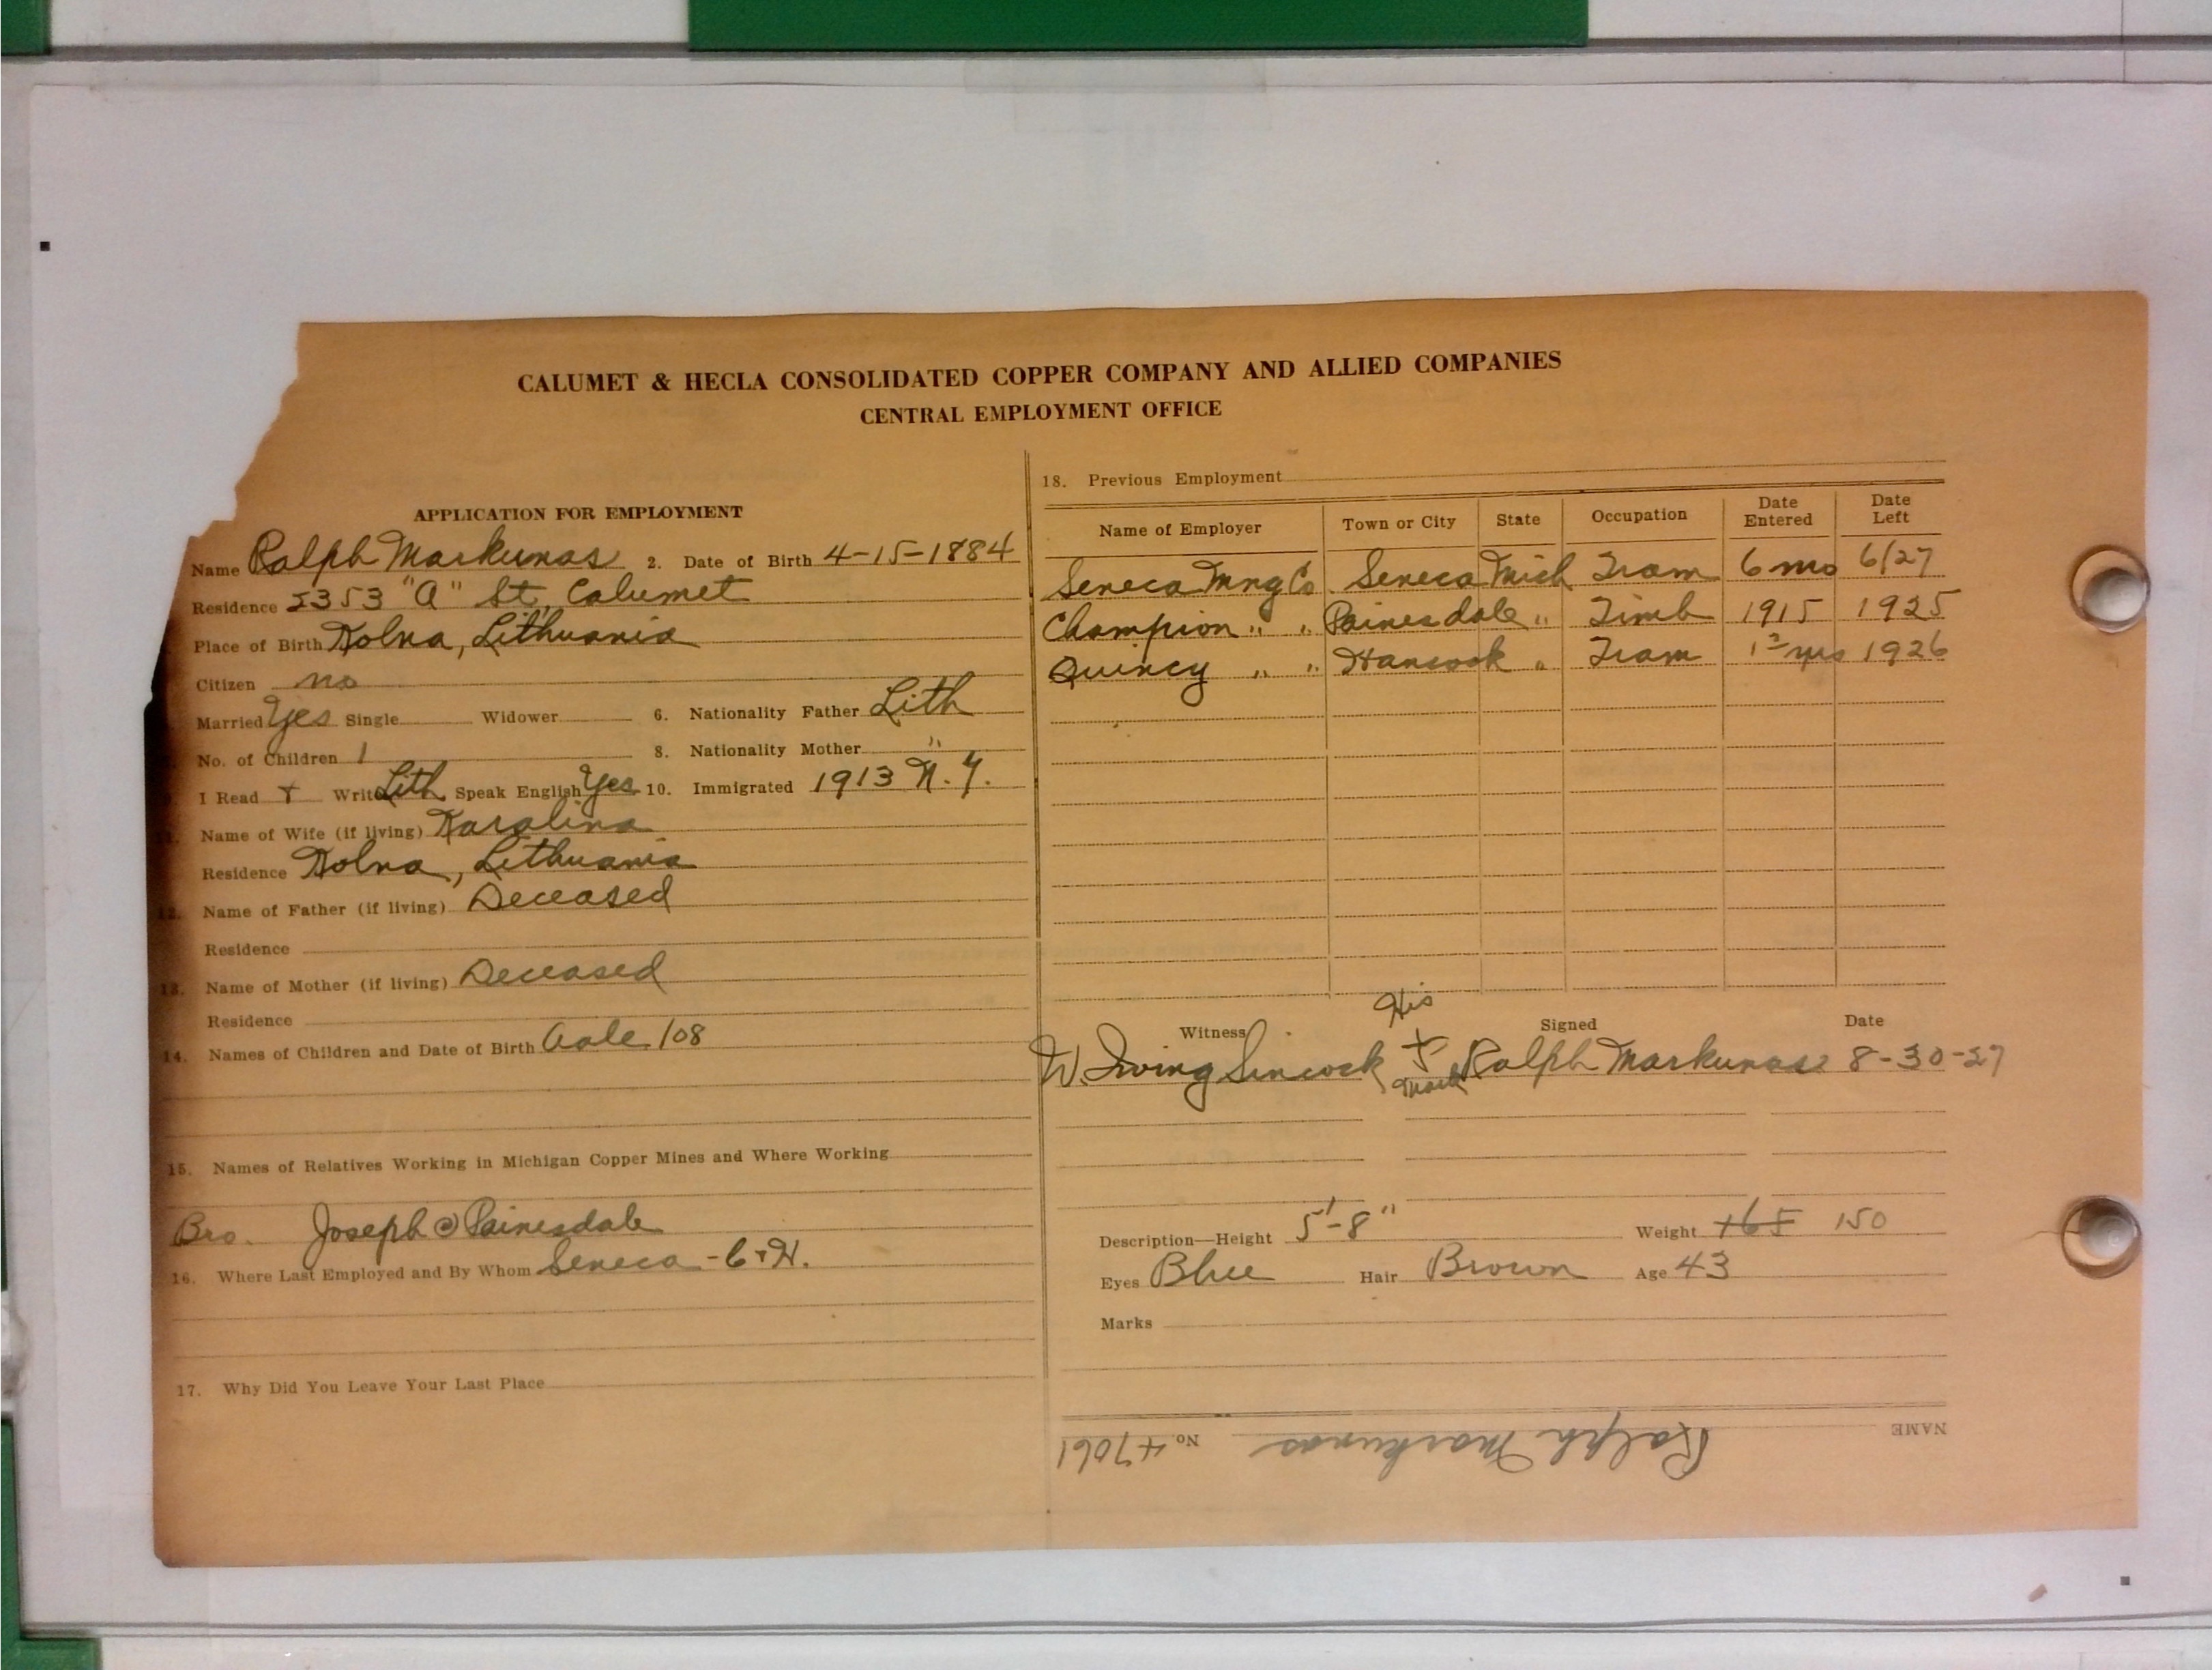 CALUMET & HECLA CONSOLIDATED COPPER COMPANY AND ALLIED COMPANIES
CENTRAL EMPLOYMENT OFFICE
APPLICATION FOR EMPLOYMENT
Name Ralph Markunas 2. Date of Birth 4-15-1884
Residence 2353 "A" St. Calumet
Place of Birth Kolna, Lithuania
Citizen no
Married Yes Single Widower 6. Nationality Father Lith
No. of Children 1 8. Nationality Mother "
I Read + Write Lith Speak English Yes 10. Immigrated 1913 N.Y.
Name of Wife (if living) Karalina
Residence Kolna, Lithuania
12. Name of Father (if living) Deceased
Residence
13. Name of Mother (if living) Deceased
Residence
14. Names of Children and Date of Birth /08
15. Names of Relatives Working in Michigan Copper Mines and Where Working
Bro. Joseph @ Painesdale
16. Where Last Employed and By Whom Seneca - C + H.
17. Why Did You Leave Your Last Place
18. Previous Employment
Name of Employer Town or City State Occupation Date Entered Date Left
Seneca Mng Co. Seneca Mich Tram 6 mo 6/27
Champion " " Painesdale " Timb 1915 1925
Quincy " " Hancock " Tram yrs 1926
Witness Signed Date
His
W. Irving Sincock + Ralph Markunas 8-30-27
Mark
Description—Height 5'-8" Weight 165 150
Eyes Blue Hair Brown Age 43
Marks
NAME Ralph Markunas No. 47061